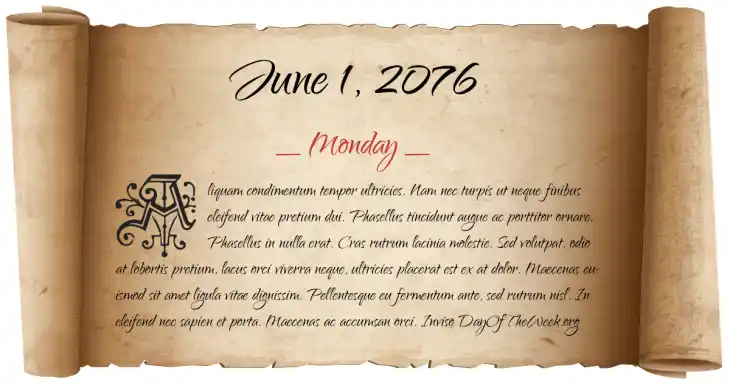 June 1, 2076
_ Monday _
Aliquam condimentum tempor ultricies. Nam nec turpis ut neque finibus
eleifend vitae pretium dui. Phasellus tincidunt augue ac porttitor ornare.
Phasellus in nulla erat. Cras rutrum lacinia molestie. Sed volutpat, odio
at lobortis pretium, lacus orci viverra neque, ultricies placerat est ex at dolor. Maecenas eu-
ismod sit amet ligula vitae dignissim. Pellentesque eu fermentum ante, sed rutrum nisl. In
eleifend nec sapien et porta. Maecenas ac accumsan orci. Inviso DayOfTheWeek.org